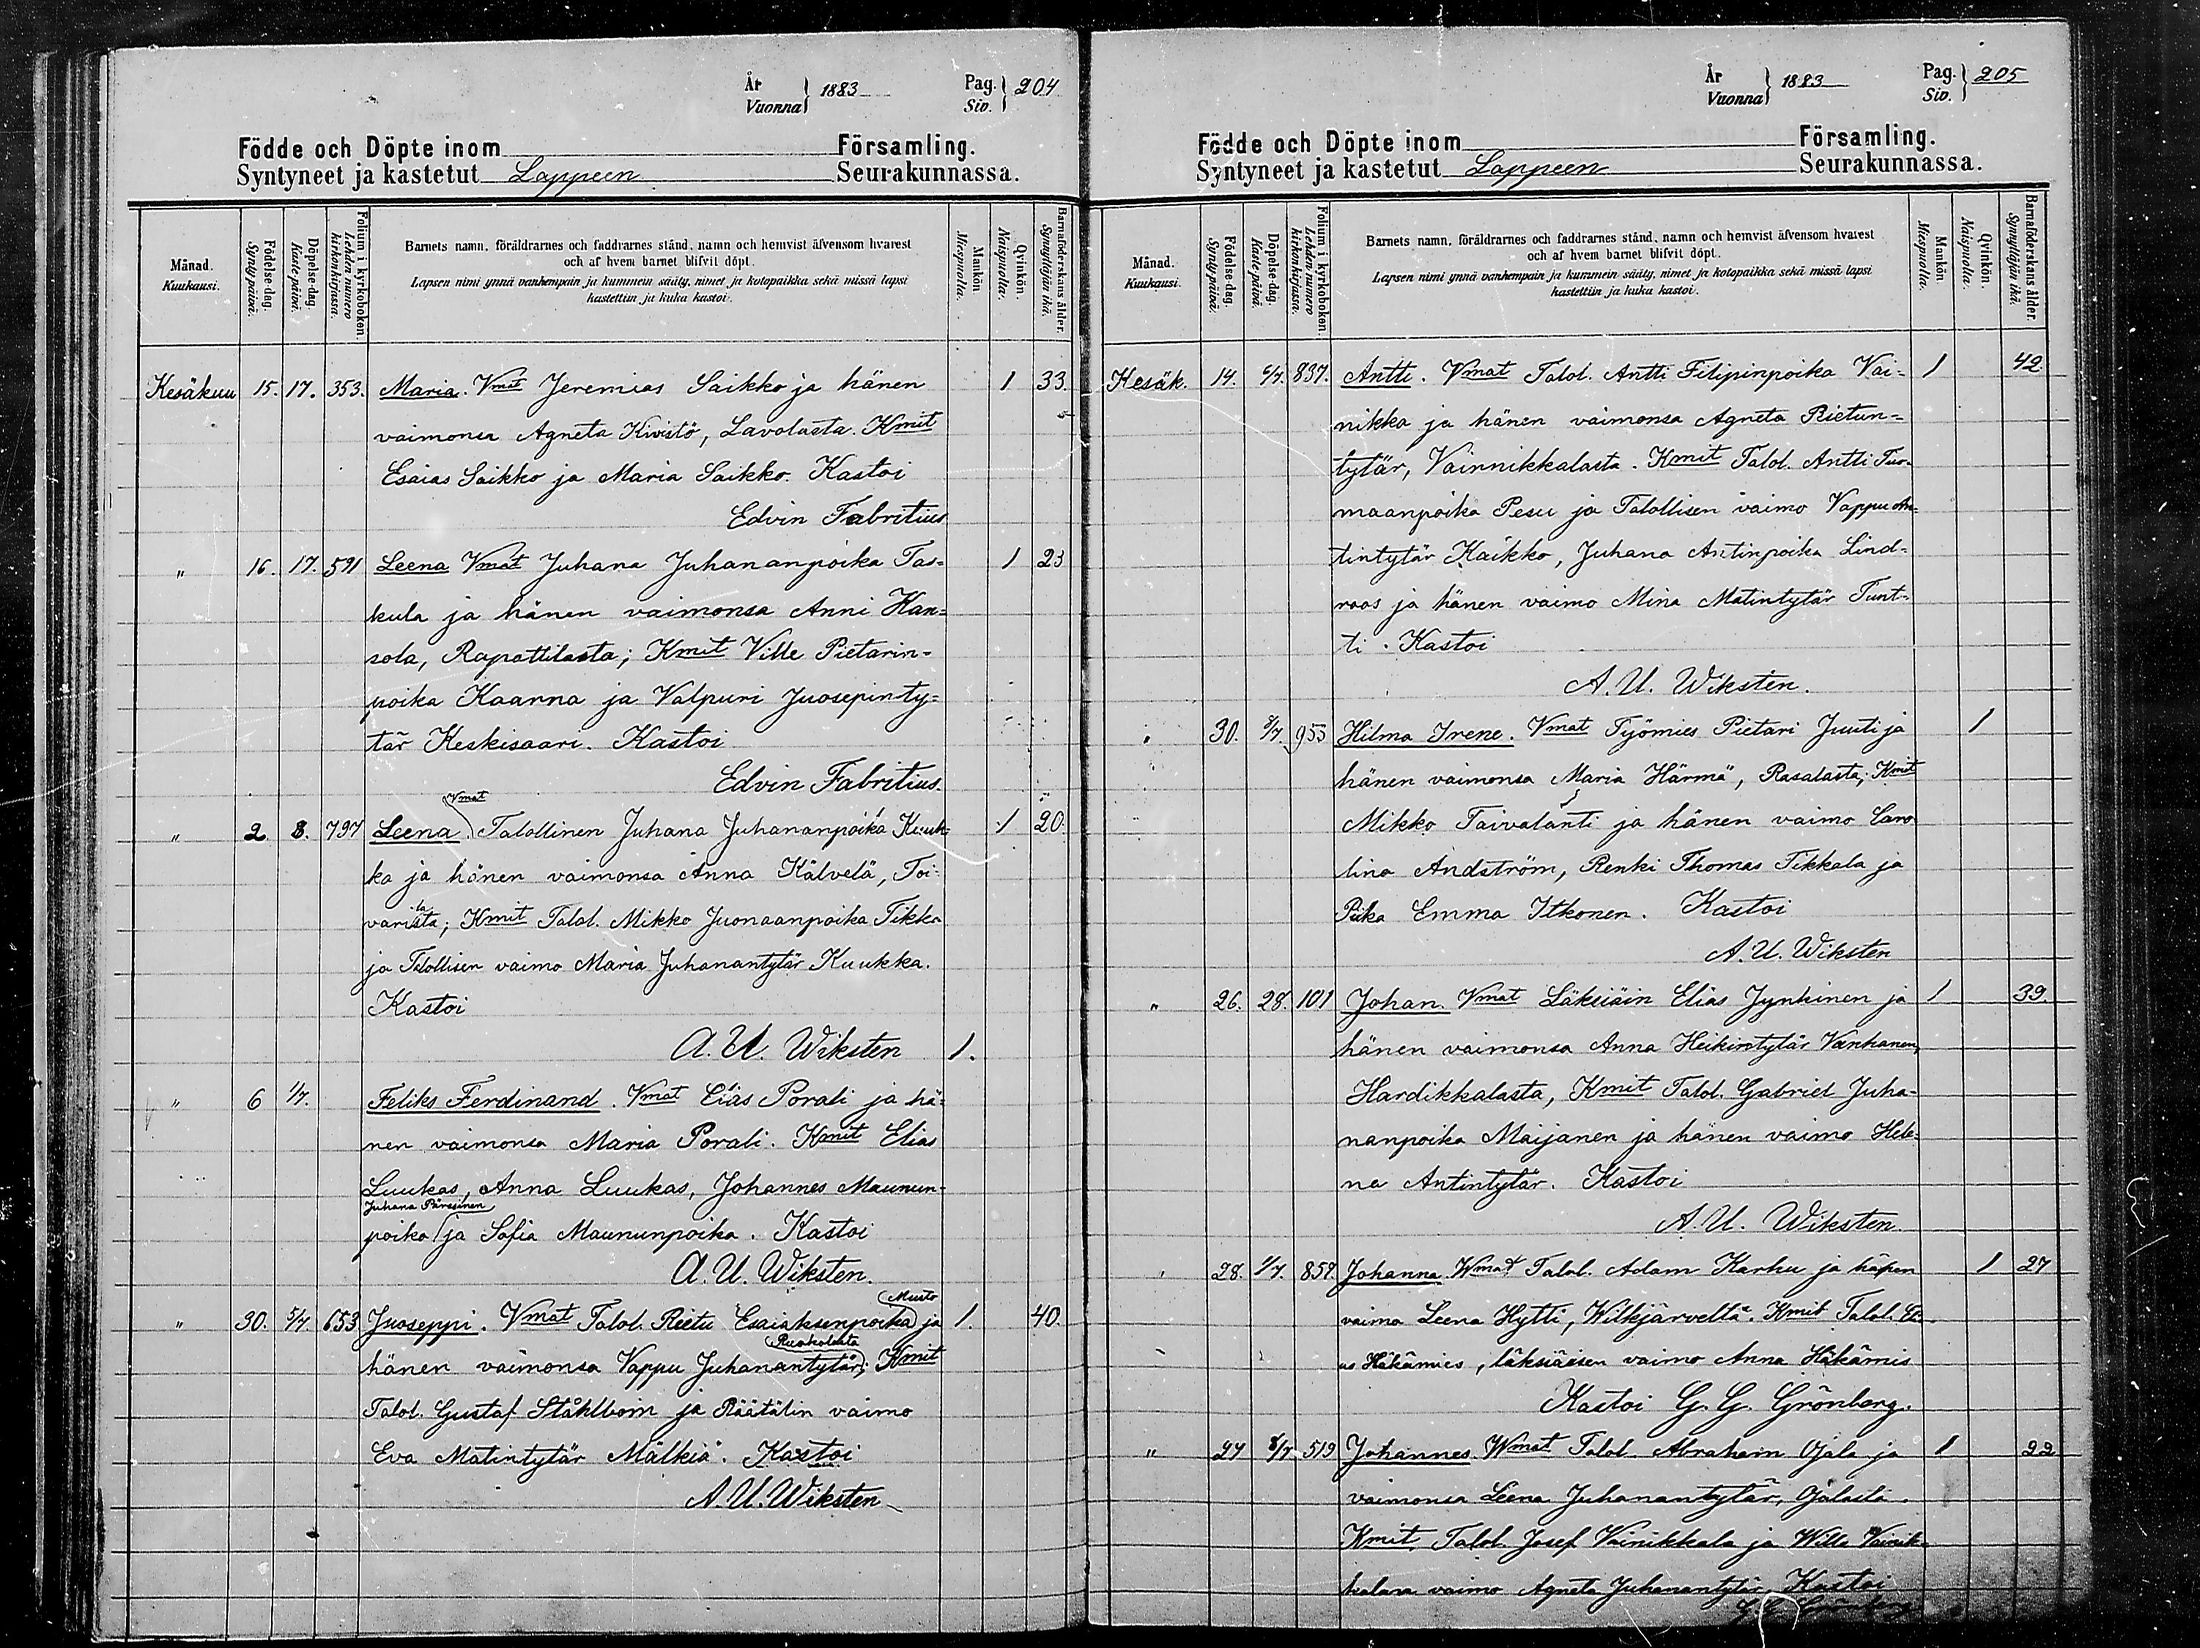 År
Vuonna } 1883 Pag.
Siv. } 204
Födde och Döpte inom Församling.
Syntyneet ja kastetut Lappeen Seurakunnassa.
Månad.
Kuukausi.
Födelse-dag.
Syntypäivä.
Döpelse-dag.
Kaste-päivä.
Folium i kyrkoboken.
Lehden numero
kirkonkirjassa.
Barnets namn, föräldrarnes och faddrarnes stånd, namn och hemvist äfvensom hvarest
och af hvem barnet blifvit döpt.
Lapsen nimi ynnä vanhempain ja kummein sääty, nimet ja kotopaikka sekä missä lapsi
kastettiin ja kuka kastoi.
Mankön.
Miespuolta.
Qvinkön.
Naispuolta.
Barnaföderskans ålder.
Synnyttäjän ikä.
Kesäkuu 15. 17. 353. Maria. Vmat Jeremias Saikko ja hänen 1 33.
vaimonsa Agneta Kivistö, Lavolasta. Kmit
Esaias Saikko ja Maria Saikko. Kastoi
Edvin Fabritius
" 16. 17. 591 Leena Vmat Juhana Juhananpoika Tas=
kula ja hänen vaimonsa Anni Kan= 1 23
sola, Rapattilasta; Kmit Ville Pietarin=
poika Kaarna ja Valpuri Juosepinty=
tär Keskisaari. Kastoi
Edvin Fabritius.
Vmat
" 2. 8. 797 Leena Talollinen Juhana Juhananpoika Kuuk= 1 20.
ka ja hänen vaimonsa Anna Kälvelä, Toi=
la
varista; Kmit Talol. Mikko Juonaanpoika Tikka
ja Talollisen vaimo Maria Juhanantytär Kuukka.
Kastoi
A. U. Wiksten 1.
" 6 1/7. Feliks Ferdinand. Vmat Elias Porali ja hä=
nen vaimonsa Maria Porali. Kmit Elias
Luukas, Anna Luukas, Johannes Maunun-
Juhana Pärssinen
poika ja Sofia Maununpoika. Kastoi
A. U. Wiksten.
Musto
" 30. 5/7 653 Juoseppi. Vmat Talol. Reetu Esaiaksenpoika ja 1. 40.
Ruokolasta
hänen vaimonsa Vappu Juhanantytär; Kmit
Talol. Gustaf Ståhlbom ja Räätälin vaimo
Eva Matintytär Mälkiä. Kastoi
A. U. Wiksten
År
Vuonna } 1883 Pag.
Siv. } 205
Födde och Döpte inom Församling.
Syntyneet ja kastetut Lappeen Seurakunnassa.
Månad.
Kuukausi.
Födelse-dag.
Syntypäivä.
Döpelse-dag.
Kaste-päivä.
Folium i kyrkoboken.
Lehden numero
kirkonkirjassa.
Barnets namn, föräldrarnes och faddrarnes stånd, namn och hemvist äfvensom hvarest
och af hvem barnet blifvit döpt.
Lapsen nimi ynnä vanhempain ja kummein sääty, nimet ja kotopaikka sekä missä lapsi
kastettiin ja kuka kastoi.
Mankön.
Miespuolta.
Qvinkön.
Naispuolta.
Barnaföderskans ålder.
Synnyttäjän ikä.
Kesäk. 14. 6/7. 837. Antti. Vmat Talol. Antti Filipinpoika Vai- 1 42.
nikka ja hänen vaimonsa Agneta Rietun=
tytär, Vainnikkalasta. Kmit Talol. Antti Tuo-
maanpoika Pesu ja Talollisen vaimo Vappu An-
tintytär Kaikko, Juhana Antinpoika Lind=
roos ja hänen vaimo Mina Matintytär Tunt-
ti. Kastoi
A. U. Wiksten.
" 30. 8/7. 955 Hilma Irene. Vmat Työmies Pietari Juuti ja 1
hänen vaimonsa Maria Härmä, Rasalasta; Kmit
Mikko Taivalanti ja hänen vaimo Caro
lina Andström, Renki Thomas Tikkala ja
Piika Emma Itkonen. Kastoi
A. U. Wiksten
" 26. 28. 101 Johan. Vmat Läksiäin Elias Jynhinen ja 1 39.
hänen vaimonsa Anna Heikintytär Vanhanen,
Hardikkalasta, Kmit Talol. Gabriel Juha-
nanpoika Maijanen ja hänen vaimo Hele-
na Antintytär. Kastoi
A. U. Wiksten.
" 28. 1/7. 857. Johanna. Wmat Talol. Adam Karhu ja hänen 1 27
vaimo Leena Hytti, Wilkjärveltä. Kmit Talol. Eli-
as Häkämies, läksiäisen vaimo Anna Häkämis
Kastoi G. G. Grönberg.
" 27 8/7 519 Johannes. Wmat Talol. Abraham Ojala ja 1 22
vaimonsa Leena Juhanantytär, Ojalasta.
Kmit. Talol. Josef Vainikkala ja Wille Vainik-
kalan vaimo Agneta Juhanantytär. Kastoi
G. G. Grönberg